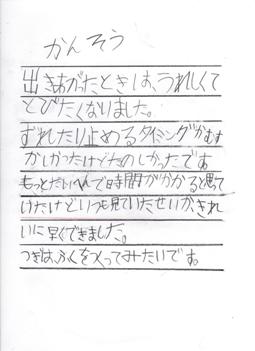 かんそう
出きあがったときは、うれしくて
とびたくなりました。
ずれたり止めるタイミングがむず
かしかったけどたのしかったです。
もっとたいへんで時間がかかると思って
けたけどいつも見ていたせいか、きれ
いに早くできました。
つぎは、ふくをつくってみたいです。